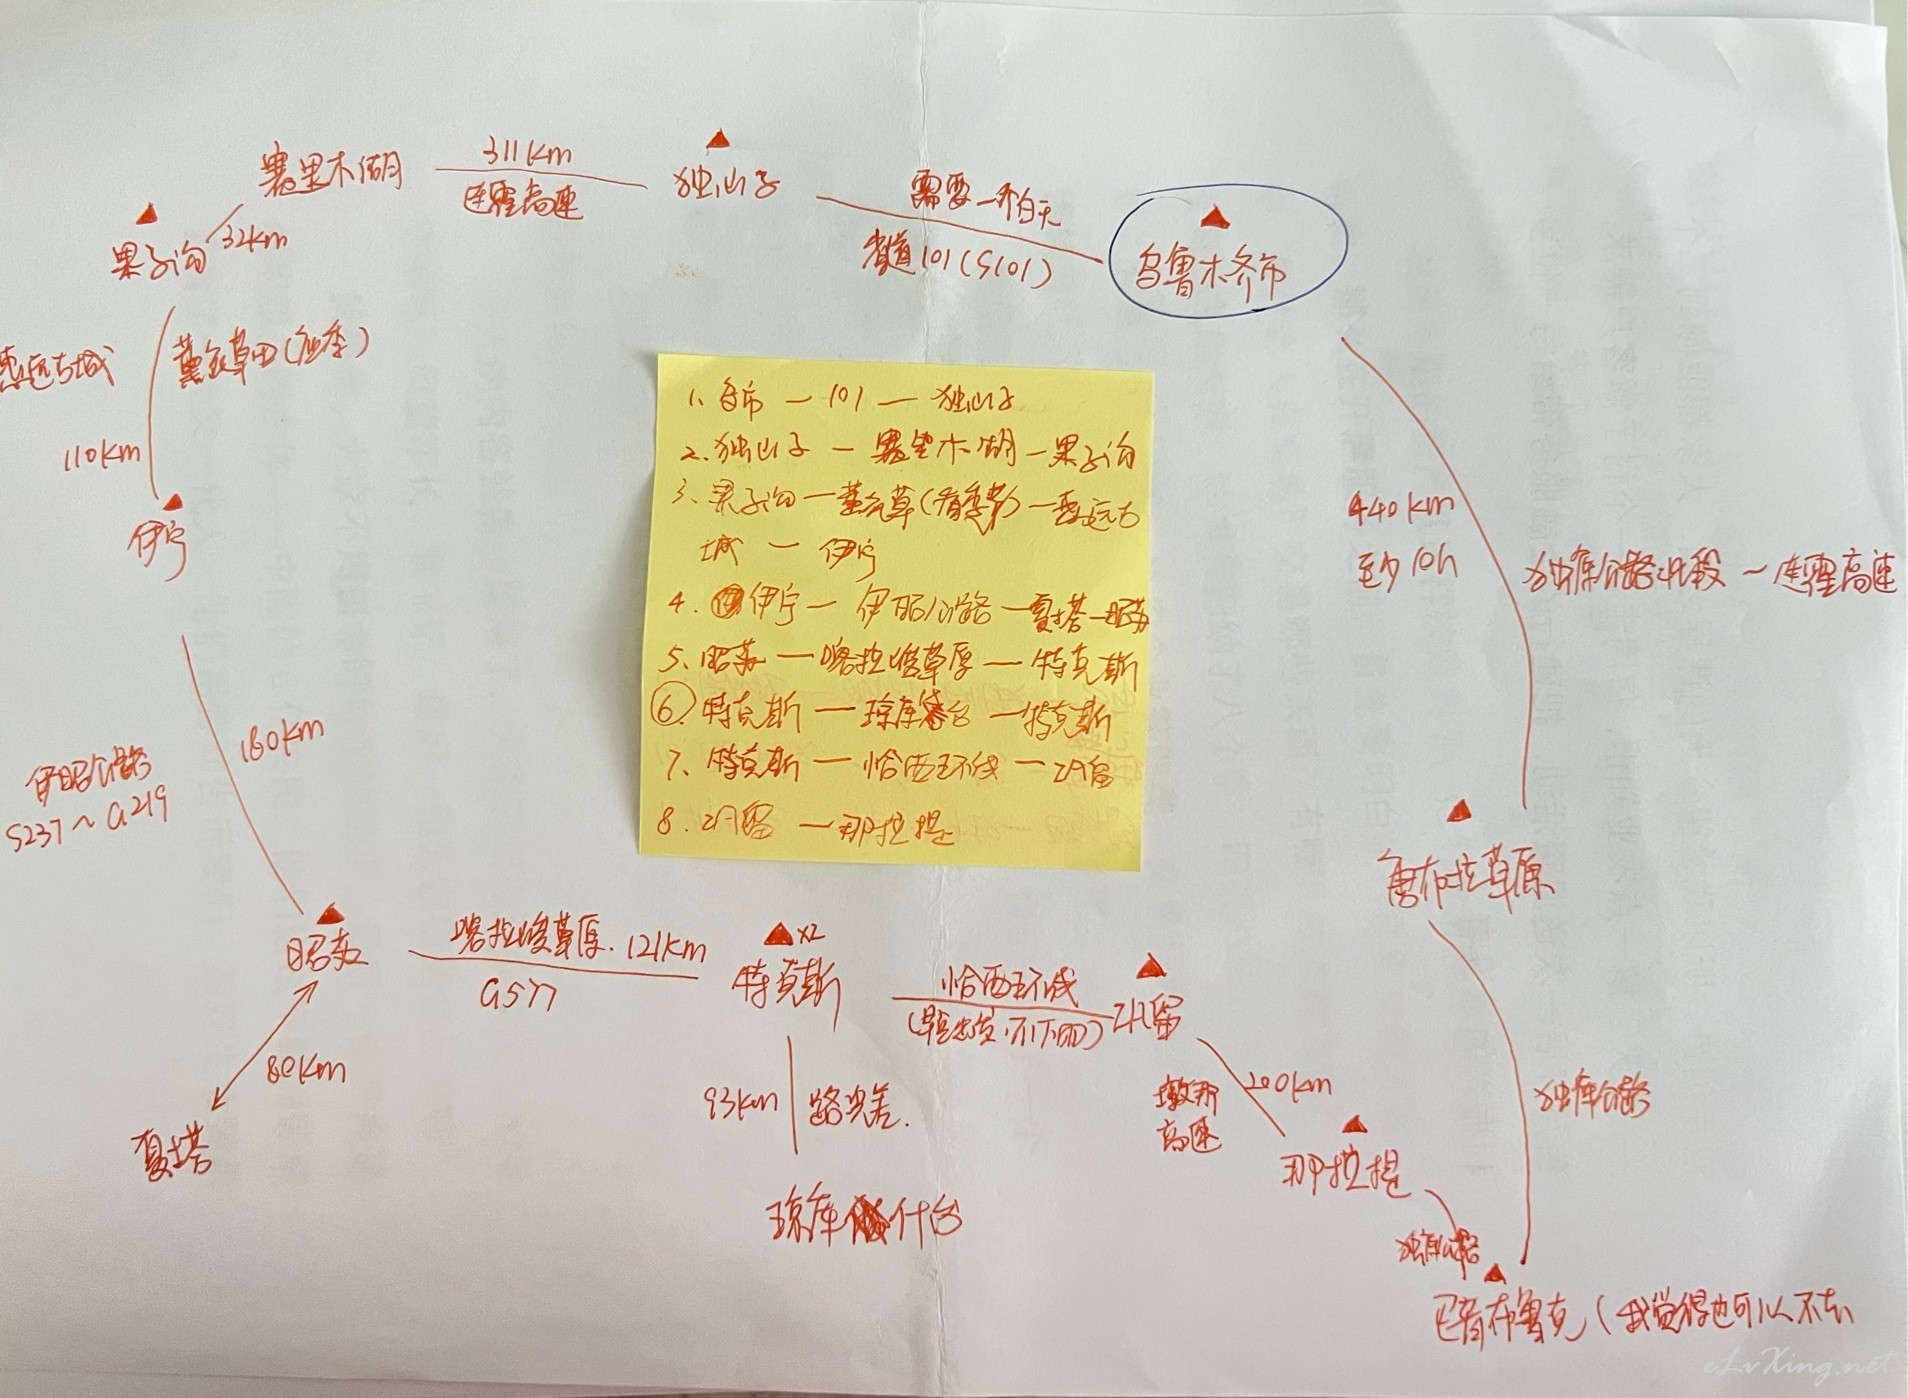 311km
赛里木湖
独山子
连霍高速
需要一个白天
省道101(S101)
乌鲁木齐市
32km
果子沟
惠远古城
薰衣草田(应季)
110km
伊宁
1、乌市 — 101 — 独山子
2、独山子 — 赛里木湖 — 果子沟
3、果子沟 — 薰衣草(有季节) — 惠远古
城 — 伊宁
4. 伊宁 — 伊昭公路 — 夏塔 — 昭苏
5、昭苏 — 喀拉峻草原 — 特克斯
⑥、特克斯 — 琼库什台 — 特克斯
7、特克斯 — 恰西环线 — 巩留
8. 巩留 — 那拉提
440km
至少10h
独库公路北段 ~ 连霍高速
180km
伊昭公路
S237 ~ G219
唐布拉草原
昭苏
喀拉峻草原. 121km
G577
x2
特克斯
恰西环线
巩留
80km
夏塔
93km
路况差.
琼库什台
200km
墩那
高速
那拉提
独库公路
独库公路
巴音布鲁克(我觉得也可以不去
cLvXing.net